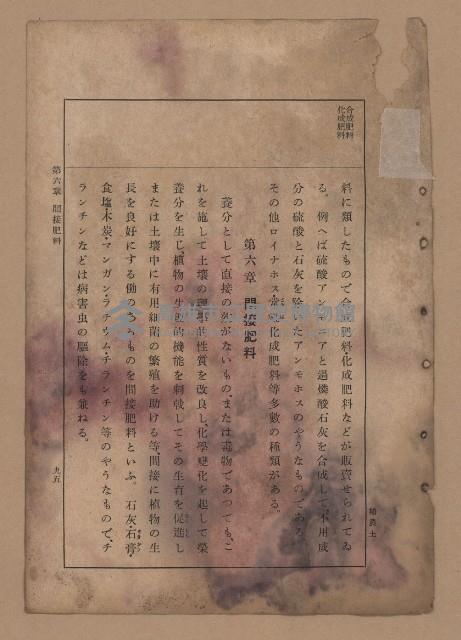 合成肥料
化成肥料
料に類したもので合成肥料・化成肥料などが販賣せられてゐ
る。例へば硫酸アンモニアと過燐酸石灰を合成して、不用成
分の硫酸と石灰を除いたアンモホスのやうなものである。
その他ロイナホス 化成肥料等多數の種類がある。
第六章 間接肥料
養分として直接の効がないもの、または毒物であつても、こ
れを施して土壤の理學的性質を改良し、化學變化を起して榮
養分を生じ、植物の生理的機能を刺戟してその生育を促進し
または土壤中に有用細菌の繁殖を助ける等、間接に植物の生
長を良好にする働のあるものを間接肥料といふ。石灰・石膏・
食塩・木炭・マンガン・ラヂウム・チランチン等のやうなもので、チ
ランチンなどは病害虫の驅除をも兼ねる。
第六章 間接肥料
九五